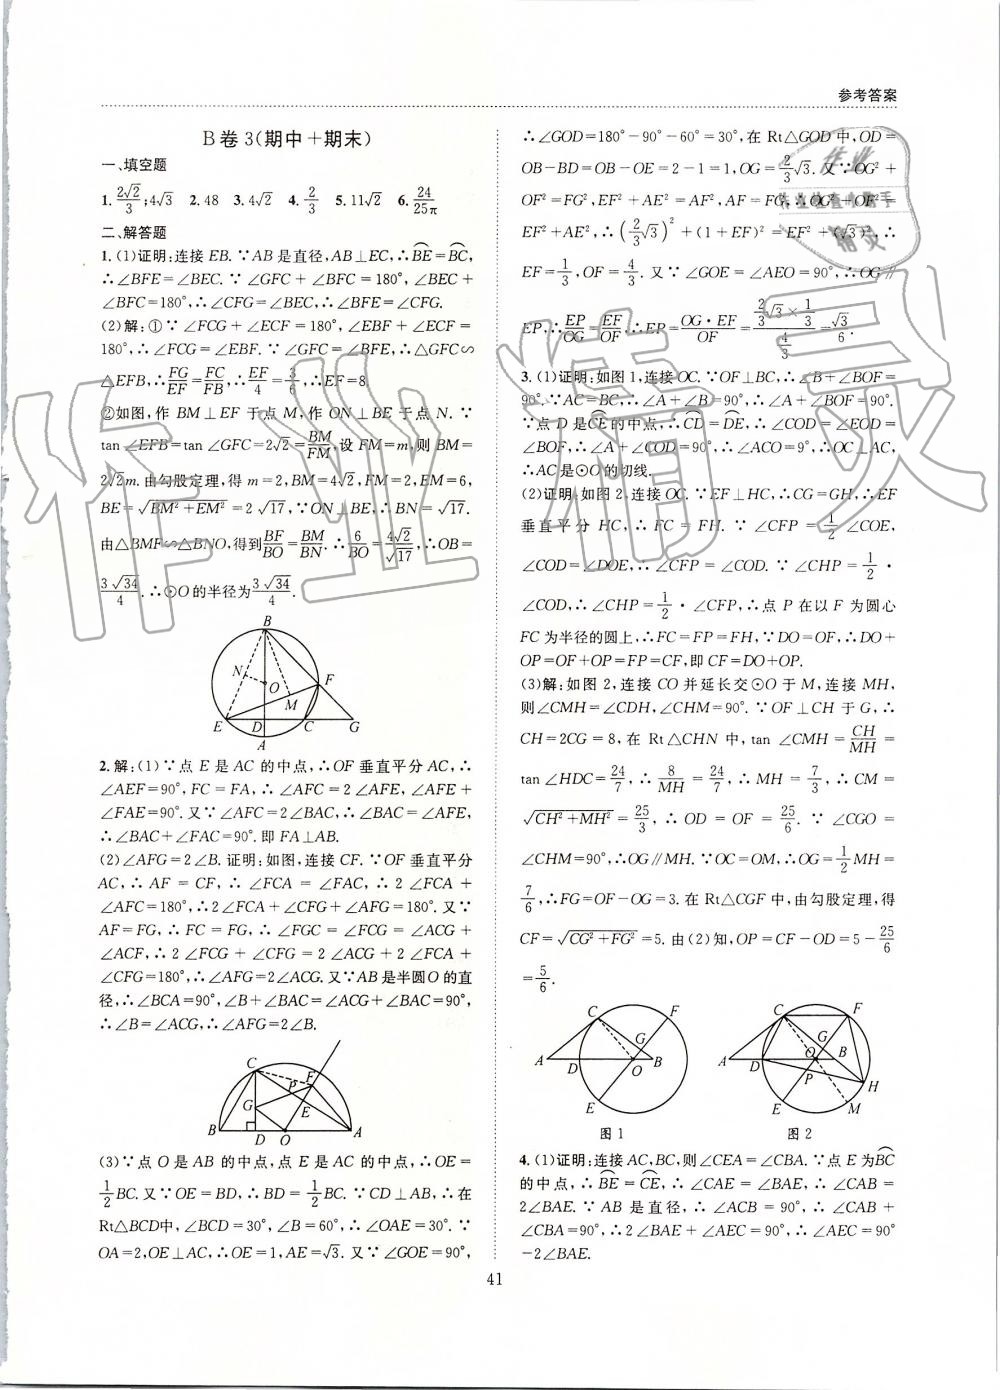 参考答案
B卷3(期中+期末)
一、填空题
1. 2√2/3;4√3 2. 48 3. 4√2 4. 2/3 5. 11√2 6. 24/25π
二、解答题
1. (1)证明:连接EB.∵AB是直径,AB⊥EC,∴B͡E=B͡C,
∴∠BFE=∠BEC. ∵∠GFC+∠BFC=180°,∠BEC+
∠BFC=180°,∴∠CFG=∠BEC,∴∠BFE=∠CFG.
(2)解:①∵∠FCG+∠ECF=180°,∠EBF+∠ECF=
180°,∴∠FCG=∠EBF. ∵∠GFC=∠BFE,∴△GFC∽
△EFB,∴FG/EF=FC/FB,∴EF/4=3/6,∴EF=8.
②如图,作BM⊥EF于点M,作ON⊥BE于点N. ∵
tan∠EFB=tan∠GFC=2√2=BM/FM,设FM=m,则BM=
2√2m.由勾股定理,得m=2,BM=4√2,FM=2,EM=6,
BE=√(BM²+EM²)=2√17,∵ON⊥BE,∴BN=√17.
由△BMF∽△BNO,得到BF/BO=BM/BN. ∴6/BO=4√2/√17,∴OB=
3√34/4.∴⊙O的半径为3√34/4.
B
N
O
F
M
E
D
C
G
A
2. 解:(1)∵点E是AC的中点,∴OF垂直平分AC,∴
∠AEF=90°,FC=FA,∴∠AFC=2∠AFE,∠AFE+
∠FAE=90°.又∵∠AFC=2∠BAC,∴∠BAC=∠AFE,
∴∠BAC+∠FAC=90°.即FA⊥AB.
(2)∠AFG=2∠B.证明:如图,连接CF.∵OF垂直平分
AC,∴AF=CF,∴∠FCA=∠FAC,∴2∠FCA+
∠AFC=180°,∴2∠FCA+∠CFG+∠AFG=180°.又∵
AF=FG,∴FC=FG,∴∠FGC=∠FCG=∠ACG+
∠ACF,∴2∠FCG+∠CFG=2∠ACG+2∠FCA+
∠CFG=180°,∴∠AFG=2∠ACG.又∵AB是半圆O的直
径,∴∠BCA=90°,∠B+∠BAC=∠ACG+∠BAC=90°,
∴∠B=∠ACG,∴∠AFG=2∠B.
C
P
F
G
E
B
D
O
A
(3)∵点O是AB的中点,点E是AC的中点,∴OE=
1/2BC.又∵OE=BD,∴BD=1/2BC. ∵CD⊥AB,∴在
Rt△BCD中,∠BCD=30°,∠B=60°,∴∠OAE=30°. ∵
OA=2,OE⊥AC,∴OE=1,AE=√3.又∵∠GOE=90°,
∴∠GOD=180°-90°-60°=30°,在Rt△GOD中,OD=
OB-BD=OB-OE=2-1=1,OG=2/3√3.又∵OG²+
OF²=FG²,EF²+AE²=AF²,AF=FG,∴OG²+OF²=
EF²+AE²,∴(2/3√3)²+(1+EF)²=EF²+(√3)²,∴
EF=1/3,OF=4/3.又∵∠GOE=∠AEO=90°,∴OG∥
EP,∴EP/OG=EF/OF,∴EP=OG·EF/OF=(2/3√3×1/3)/(4/3)=√3/6.
3. (1)证明:如图1,连接OC.∵OF⊥BC,∴∠B+∠BOF=
90°.∵AC=BC,∴∠A=∠B=90°,∴∠A+∠BOF=90°.
∵点D是C͡E的中点,∴C͡D=D͡E,∴∠COD=∠EOD=
∠BOF,∴∠A+∠COD=90°,∴∠ACO=9°,∴OC⊥AC,
∴AC是⊙O的切线.
(2)证明:如图2,连接OC.∵EF⊥HC,∴CG=GH,∴EF
垂直平分HC,∴FC=FH. ∵∠CFP=1/2∠COE,
∠COD=∠DOE,∴∠CFP=∠COD. ∵∠CHP=1/2·
∠COD,∴∠CHP=1/2·∠CFP,∴点P在以F为圆心
FC为半径的圆上,∴FC=FP=FH,∵DO=OF,∴DO+
OP=OF+OP=FP=CF,即CF=DO+OP.
(3)解:如图2,连接CO并延长交⊙O于M,连接MH,
则∠CMH=∠CDH,∠CHM=90°. ∵OF⊥CH于G,∴
CH=2CG=8,在Rt△CHN中,tan∠CMH=CH/MH=
tan∠HDC=24/7,∴8/MH=24/7,∴MH=7/3,∴CM=
√(CH²+MH²)=25/3,∴OD=OF=25/6. ∵∠CGO=
∠CHM=90°,∴OG∥MH. ∵OC=OM,∴OG=1/2MH=
7/6,∴FG=OF-OG=3.在Rt△CGF中,由勾股定理,得
CF=√(CG²+FG²)=5.由(2)知,OP=CF-OD=5-25/6
=5/6.
C
F
G
A
D
O
B
E
图1
C
F
G
A
D
O
B
P
H
E
M
图2
4. (1)证明:连接AC,BC,则∠CEA=∠CBA. ∵点E为B͡C
的中点,∴B͡E=C͡E,∴∠CAE=∠BAE,∴∠CAB=
2∠BAE. ∵AB是直径,∴∠ACB=90°,∴∠CAB+
∠CBA=90°,∴2∠BAE+∠AEC=90°,∴∠AEC=90°
-2∠BAE.
41
作业精灵
作业
作业检查小助手
精灵